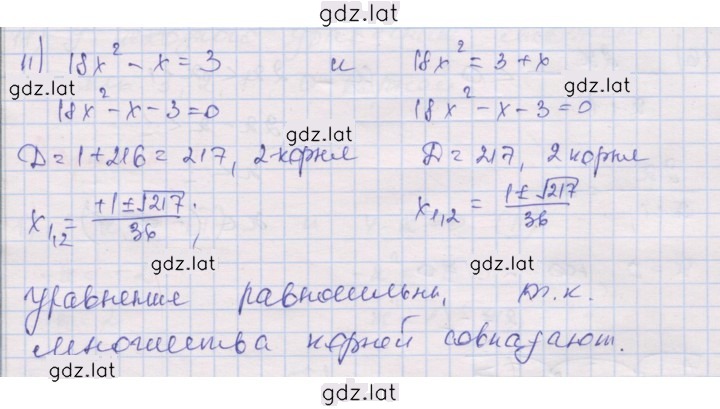 gdz.lat
11) 18x² - x = 3 и 18x² = 3 + x
gdz.lat gdz.lat
18x² - x - 3 = 0 18x² - x - 3 = 0
gdz.lat
D = 1 + 216 = 217, 2 корня D = 217, 2 корня
x₁,₂ = (+1 ± √217)/36; x₁,₂ = (1 ± √217)/36
gdz.lat gdz.lat
уравнение равносильны, т.к.
множества корней совпадают.
gdz.lat gdz.lat
gdz.lat